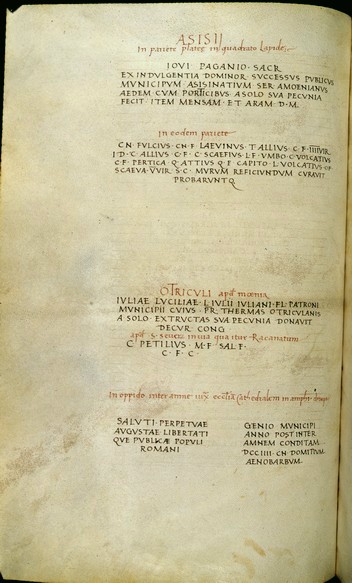 ASISII
In pariete plateę in quadrato Lapide.
IOVI PAGANIO · SACR
EX INDVLGENTIA DOMINOR · SVCCESSVS PVBLICVS
MVNICIPVM ASISINATIVM SER AMOENIANVS
AEDEM CVM PORTICIBVS A SOLO SVA PECVNIA
FECIT · ITEM MENSAM · ET ARAM · D · M ·
In eodem pariete
CN · FVLCIVS · CN · F · LAEVINVS · T ALLIVS · C · F · IIIIVIR
I · D · C · ALLIVS · C · F · C · SCAEFIVS · L · F · VMBO · C VOLCATIVS
C · F · PERTICA · Q · ATTIVS · Q · F · CAPITO · L VOLCATIVS · C F
SCAEVA · VVIR · S · C · MVRVM REFICIVNDVM CVRAVIT
PROBARVNTQ
OTRICVLI apđ moenia
IVLIAE LVCILIAE · L IVLII IVLIANI · FL · PATRONI
MVNICIPII CVIVS · PR · THERMAS OTRICVLANIS
A SOLO · EXTRVCTAS SVA PECVNIA DONAVIT
DECVR · CONG
apđ S · severi in via qua itur
C PETILIVS · M · F · SAL F ·
C · F · C
In oppido
SALVTI · PERPETVAE
AVGVSTAE · LIBERTATI
QVE PVBLICAE POPVLI
ROMANI
GENIO MVNICIPI
ANNO POST INTER
AMNEM CONDITAM
DCCIIII · CN · DOMITIVM
AENOBARBVM ·